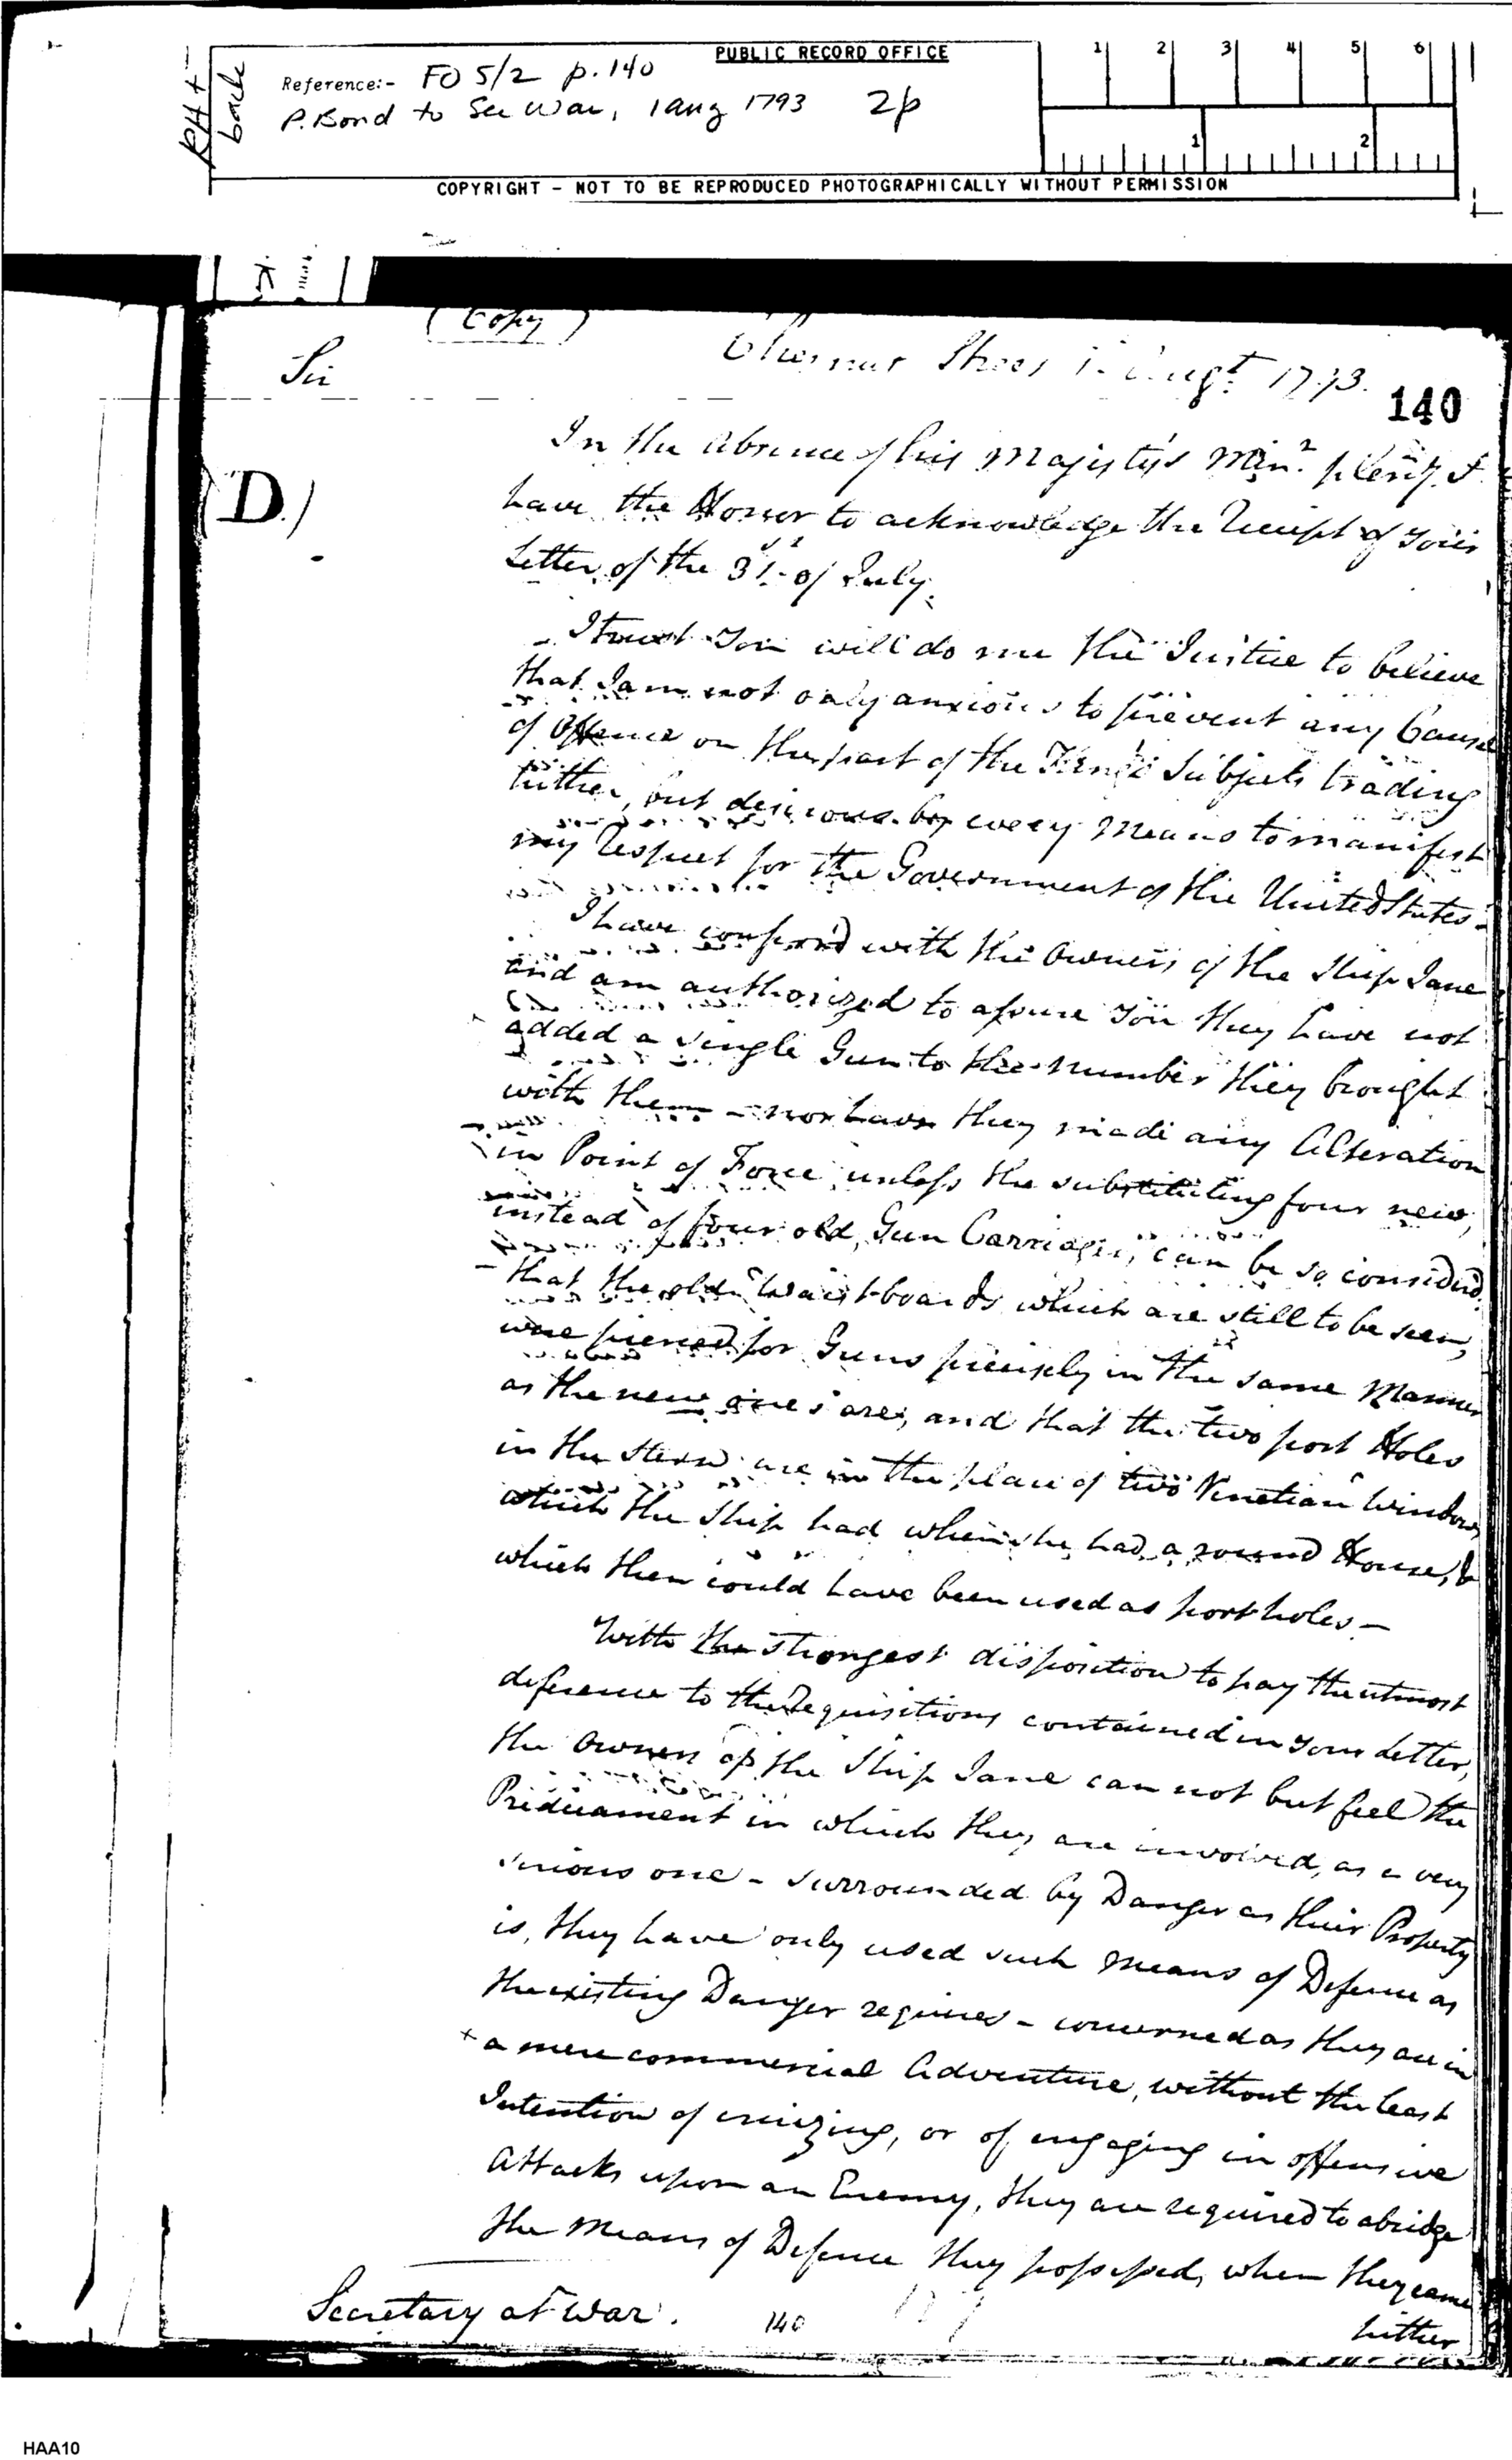 PUBLIC RECORD OFFICE
Reference:- FO 5/2 p.140
P. Bond to Sec War, 1 Aug 1793 2p
back
1 2 3 4 5 6
1 2
COPYRIGHT - NOT TO BE REPRODUCED PHOTOGRAPHICALLY WITHOUT PERMISSION
(Copy)
Chesnut Street 1. Augt. 1793.
Sir
140
(D.)
In the absence of his Majesty's Minr. pleny. I
have the Honor to acknowledge the Receipt of your
Letter of the 31st of July.
I trust you will do me the Justice to believe
that I am not only anxious to prevent any Cause
of Offence on the part of the King's Subjects trading
hither, but desirous by every Means to manifest
my Respect for the Government of the United States.-
I have conferr'd with the Owners of the Ship Jane
and am authorized to assure you they have not
added a single Gun to the Number they brought
with them - nor have they made any Alteration
in Point of Force, unless the substituting four new,
instead of four old, Gun Carriages, can be so considerd,
- that the old Waist-boards which are still to be seen,
were pierced for Guns precisely in the same Manner
as the new ones are, and that the two port Holes
in the Stern are in the place of two Venetian Windows
which the Ship had when she had a round House, &
which then could have been used as port holes. -
With the strongest disposition to pay the utmost
deference to the Requisitions contained in your Letter,
the Owners of the Ship Jane can not but feel the
Predicament in which they are involved, as a very
serious one - surrounded by Danger as their Property
is, they have only used such Means of Defence as
the existing Danger requires - concerned as they are in
+ a mere commercial Adventure, without the least
Intention of cruizing, or of engaging in offensive
Attacks upon an Enemy, they are required to abridge
the Means of Defence they possessed, when they came
hither
Secretary at War.
140
HAA10